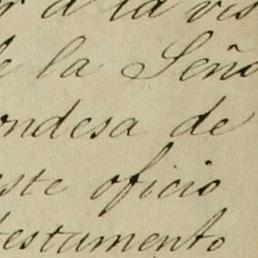 r á la vis
e la Seño
ondesa de
este oficio
testamento